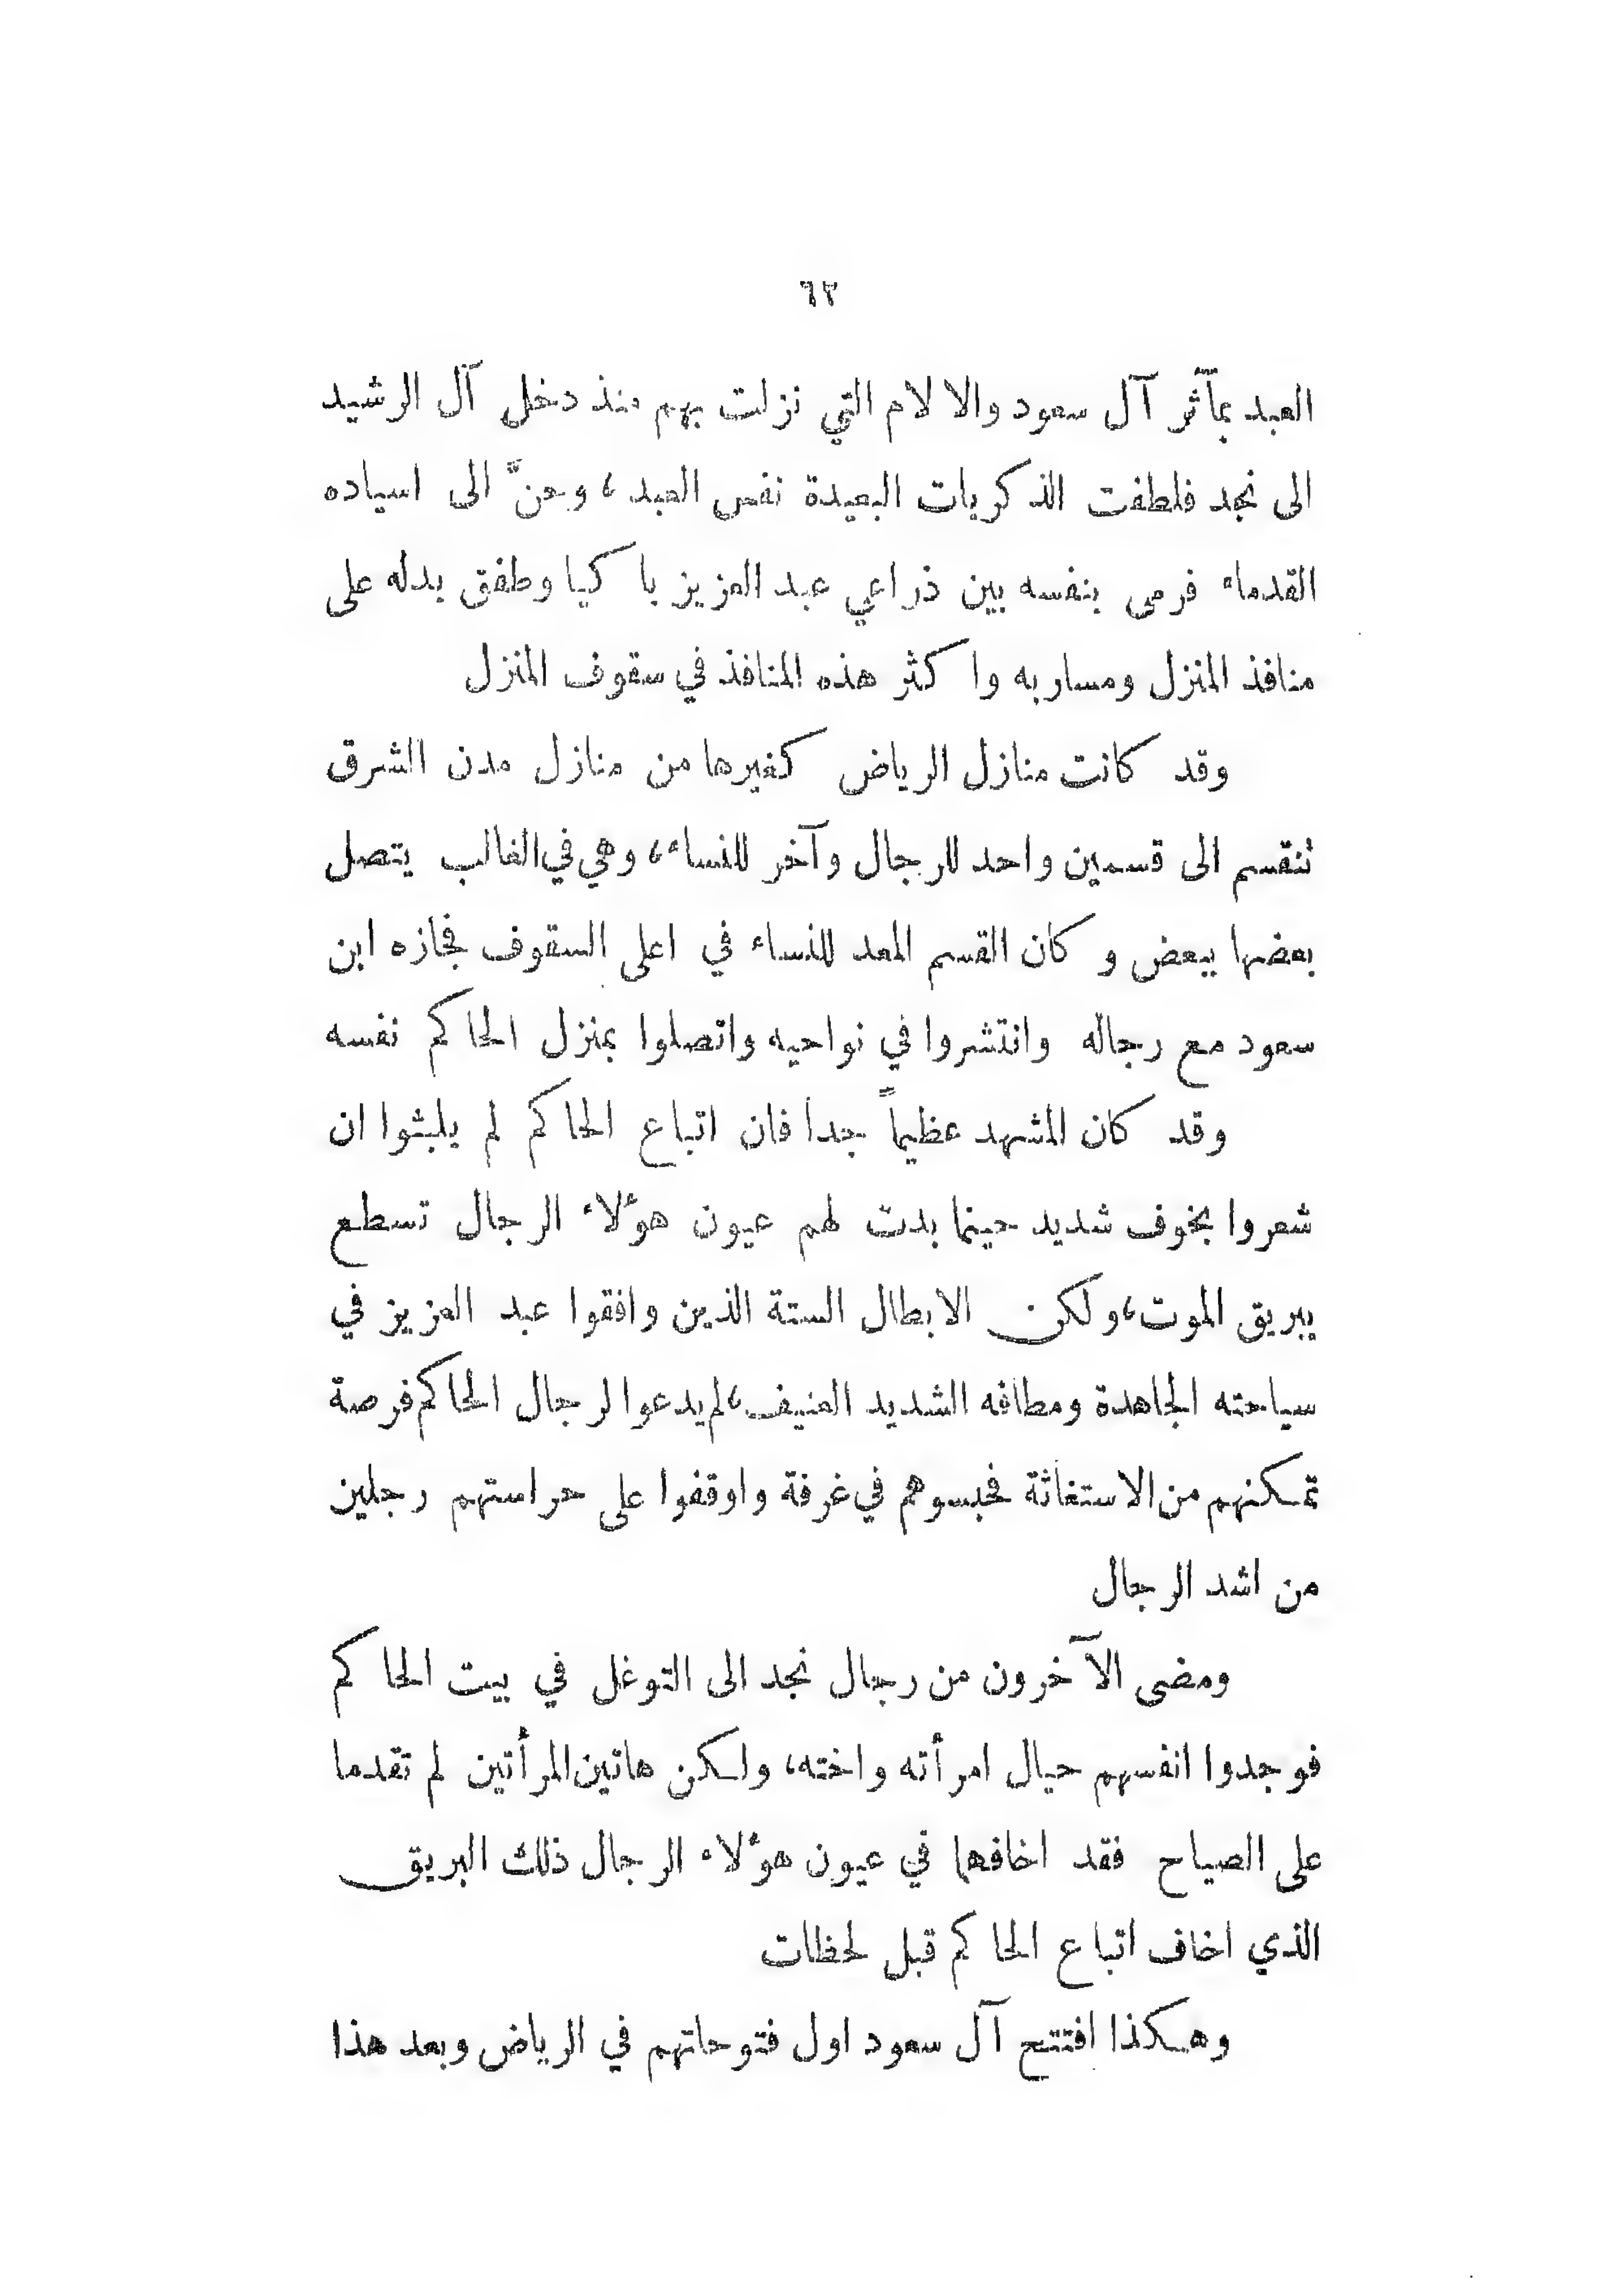 ٦٢
العبد بمآثر آل سعود والالام التي نزلت بهم منذ دخل آل الرشيد
الى نجد فلطفت الذكريات البعيدة نفس العبد، وحنَّ الى اسياده
القدماء فرمى بنفسه بين ذراعي عبد العزيز باكيا وطفق يدله على
منافذ المنزل ومساربه واكثر هذه المنافذ في سقوف المنزل
وقد كانت منازل الرياض كغيرها من منازل مدن الشرق
تنقسم الى قسمين واحد للرجال وآخر للنساء، وهي في الغالب يتصل
بعضها ببعض وكان القسم المعد للنساء في اعلى السقوف فجازه ابن
سعود مع رجاله وانتشروا في نواحيه واتصلوا بمنزل الحاكم نفسه
وقد كان المشهد عظيماً جدا فان اتباع الحاكم لم يلبثوا ان
شعروا بخوف شديد حينما بدت لهم عيون هؤلاء الرجال تسطع
ببريق الموت، ولكن الابطال الستة الذين وافقوا عبد العزيز في
سياحته الجاهدة ومطافه الشديد العنيف، لم يدعوا لرجال الحاكم فرصة
تمكنهم من الاستغاثة فحبسوهم في غرفة واوقفوا على حراستهم رجلين
من اشد الرجال
ومضى الآخرون من رجال نجد الى التوغل في بيت الحاكم
فوجدوا انفسهم حيال امرأته واخته، ولكن هاتين المرأتين لم تقدما
على الصياح فقد اخافهما في عيون هؤلاء الرجال ذلك البريق
الذي اخاف اتباع الحاكم قبل لحظات
وهكذا افتتح آل سعود اول فتوحاتهم في الرياض وبعد هذا